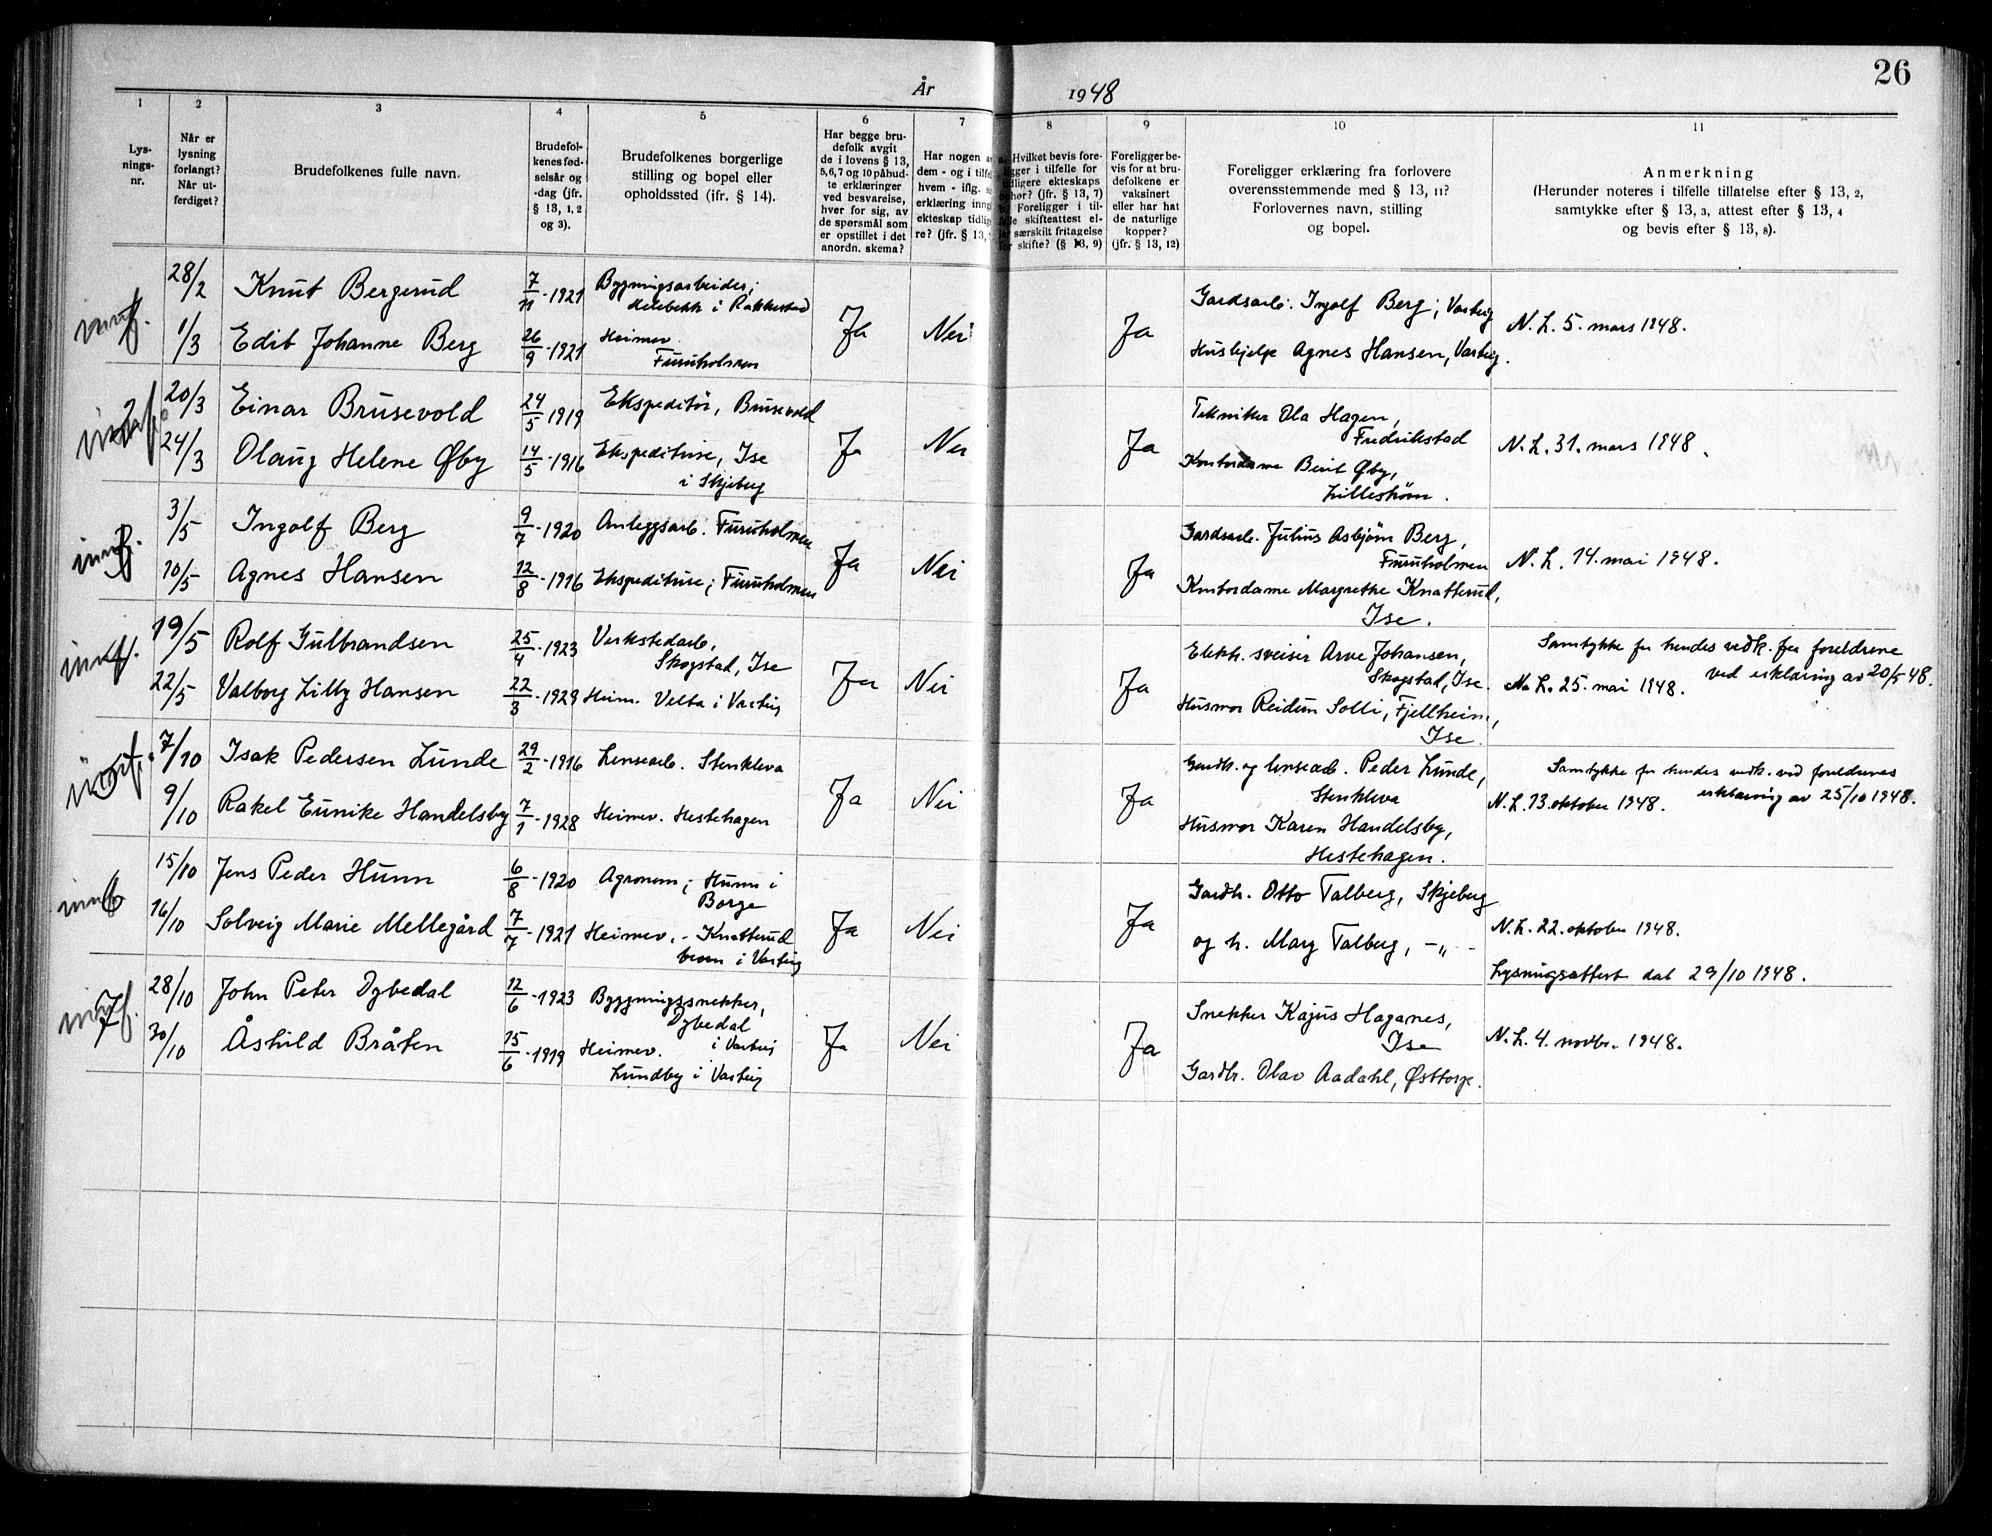 26
År 1948
1 2 3 4 5 6 7 8 9 10 11
Lys-
nings-
nr.
Når er
lysning
forlangt?
Når ut-
ferdiget?
Brudefolkenes fulle navn.
Brudefol-
kenes fød-
selsår og
-dag (jfr.
§ 13, 1, 2
og 3).
Brudefolkenes borgerlige
stilling og bopel eller
opholdssted (ifr. § 14).
Har begge bru-
defolk avgit
de i lovens § 13,
5,6,7 og 10 påbud-
te erklæringer
ved besvarelse,
hver for sig, av
de spørsmål som
er opstillet i det
anordn. skema?
Har nogen a
dem - og i tilfe
hvem - iflg.
erklæring inng
ekteskap tidlig
re? (jfr. § 13,
Hvilket bevis fore-
ligger i tilfelle for
tidligere ekteskaps
ophør? (jfr. § 13, 7)
Foreligger i til-
felle skifteattest el-
ler særskilt fritagelse
for skifte? (§ 13, 9)
Foreligger be-
vis for at bru-
defolkene er
vaksinert
eller har hat
de naturlige
kopper?
(jfr. § 13, 12)
Foreligger erklæring fra forlovere
overensstemmende med § 13, 11?
Forlovernes navn, stilling
og bopel.
Anmerkning
(Herunder noteres i tilfelle tillatelse efter § 13, 2,
samtykke efter § 13, 3, attest efter § 13, 4
og bevis efter § 13, 8).
28/2 Knut Bergerud 7/11-1921 Bygningsarbeider;
i Rakkestad
1/3 Edit Johanne Berg 26/9-1921 Heimev.
Furuholmen
Ja Nei Ja
Gardsarb. Ingolf Berg; Varteig
Hushjelp Agnes Hansen, Varteig.
N. L. 5. mars 1948.
20/3 Einar Brusevold 24/5-1919 Ekspeditør, Brusevold
24/3 Olaug Helene Øby 14/5-1916 Ekspeditrise, Ise
i Skjeberg
Ja Nei Ja
Tekniker Ola Hagen,
Fredrikstad
Kontordame Berit Øby,
Lillestrøm.
N. L. 31. mars 1948.
3/5 Ingolf Berg 9/7-1920 Anleggsarb. Furuholmen
10/5 Agnes Hansen 12/8-1916 Ekspeditrise; Furuholmen
Ja Nei Ja
Gardsarb. Julius Asbjørn Berg,
Furuholmen
Kontordame Margrethe Knatterud,
Ise.
N. L. 14. mai 1948.
19/5 Rolf Gulbrandsen 25/4-1923 Verkstedarb.,
Skogstad, Ise
22/5 Valborg Lilly Hansen 22/3-1929 Heim. Velta i Varteig
Ja Nei Ja
Elektr. sveiser Arve Johansen,
Skogstad, Ise.
Husmor Reidun Solli, Fjellheim,
Ise.
Samtykke for hendes vedk. fra foreldrene
ved erklæring av 20/5 48.
N. L. 25. mai 1948.
7/10 Isak Pedersen Lunde 29/2-1916 Lensearb. Stenkleva
9/10 Rakel Eunike Handelsby 7/1-1928 Heimev. Hestehagen
Ja Nei Ja
Gardbr. og lensearb. Peder Lunde,
Stenkleva
Husmor Karen Handelsby,
Hestehagen.
Samtykke for hendes vedk. ved foreldrenes
erklæring av 25/10 1948.
N. L. 13. oktober 1948.
15/10 Jens Peder Hunn 6/8-1920 Agronom; Hunn i
Borge
16/10 Solveig Marie Mellegård 7/7-1921 Heimev. - Knatterud
i Varteig
Ja Nei Ja
Gardbr. Otto Talberg, Skjeberg
og h. Mary Talberg, -„-
N. L. 22. oktober 1948.
Lysningsattest dat 29/10 1948.
28/10 John Peter Dybedal 12/6-1923 Bygningssnekker,
Dybedal
i Varteig
30/10 Åshild Bråten 15/6-1919 Heimev.
Lundby i Varteig
Ja Nei Ja
Snekker Kajus Haganes,
Ise
Gardbr. Olav Aadahl, Østtorp.
N. L. 4. novbr. 1948.